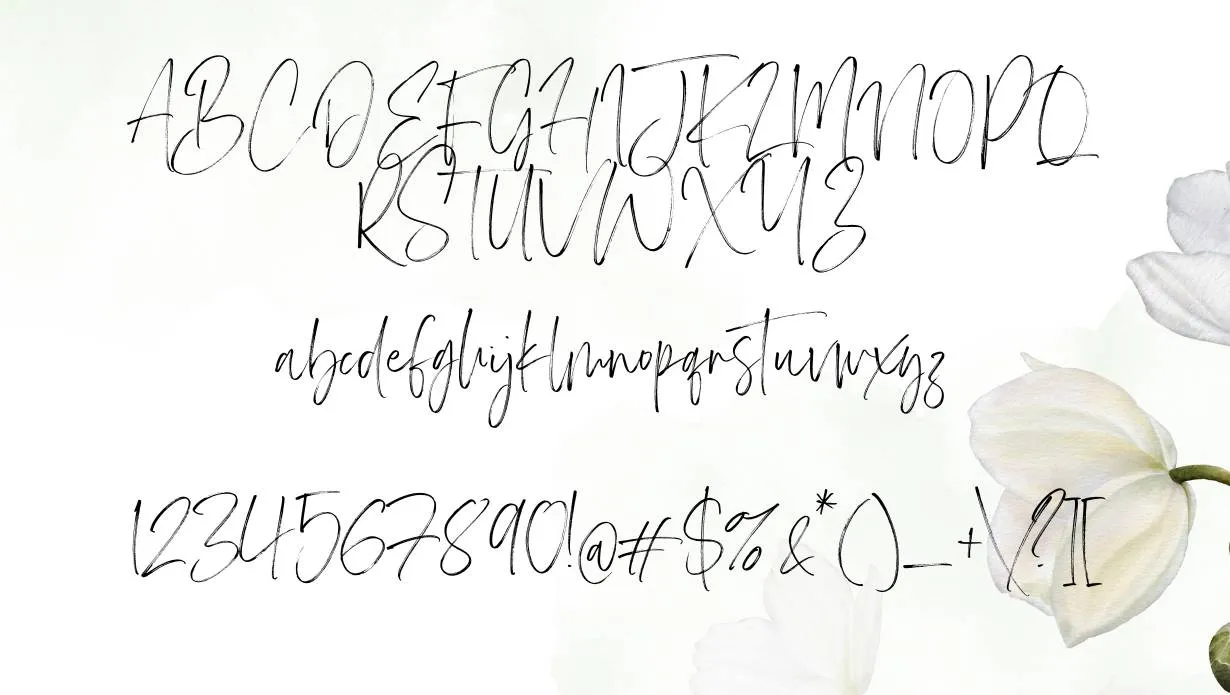 ABCDEFGHIJKLMNOPQ
RSTUVWXYZ
abcdefghijklmnopqrstuvwxyz
1234567890!@#$%&*()_+\/?][